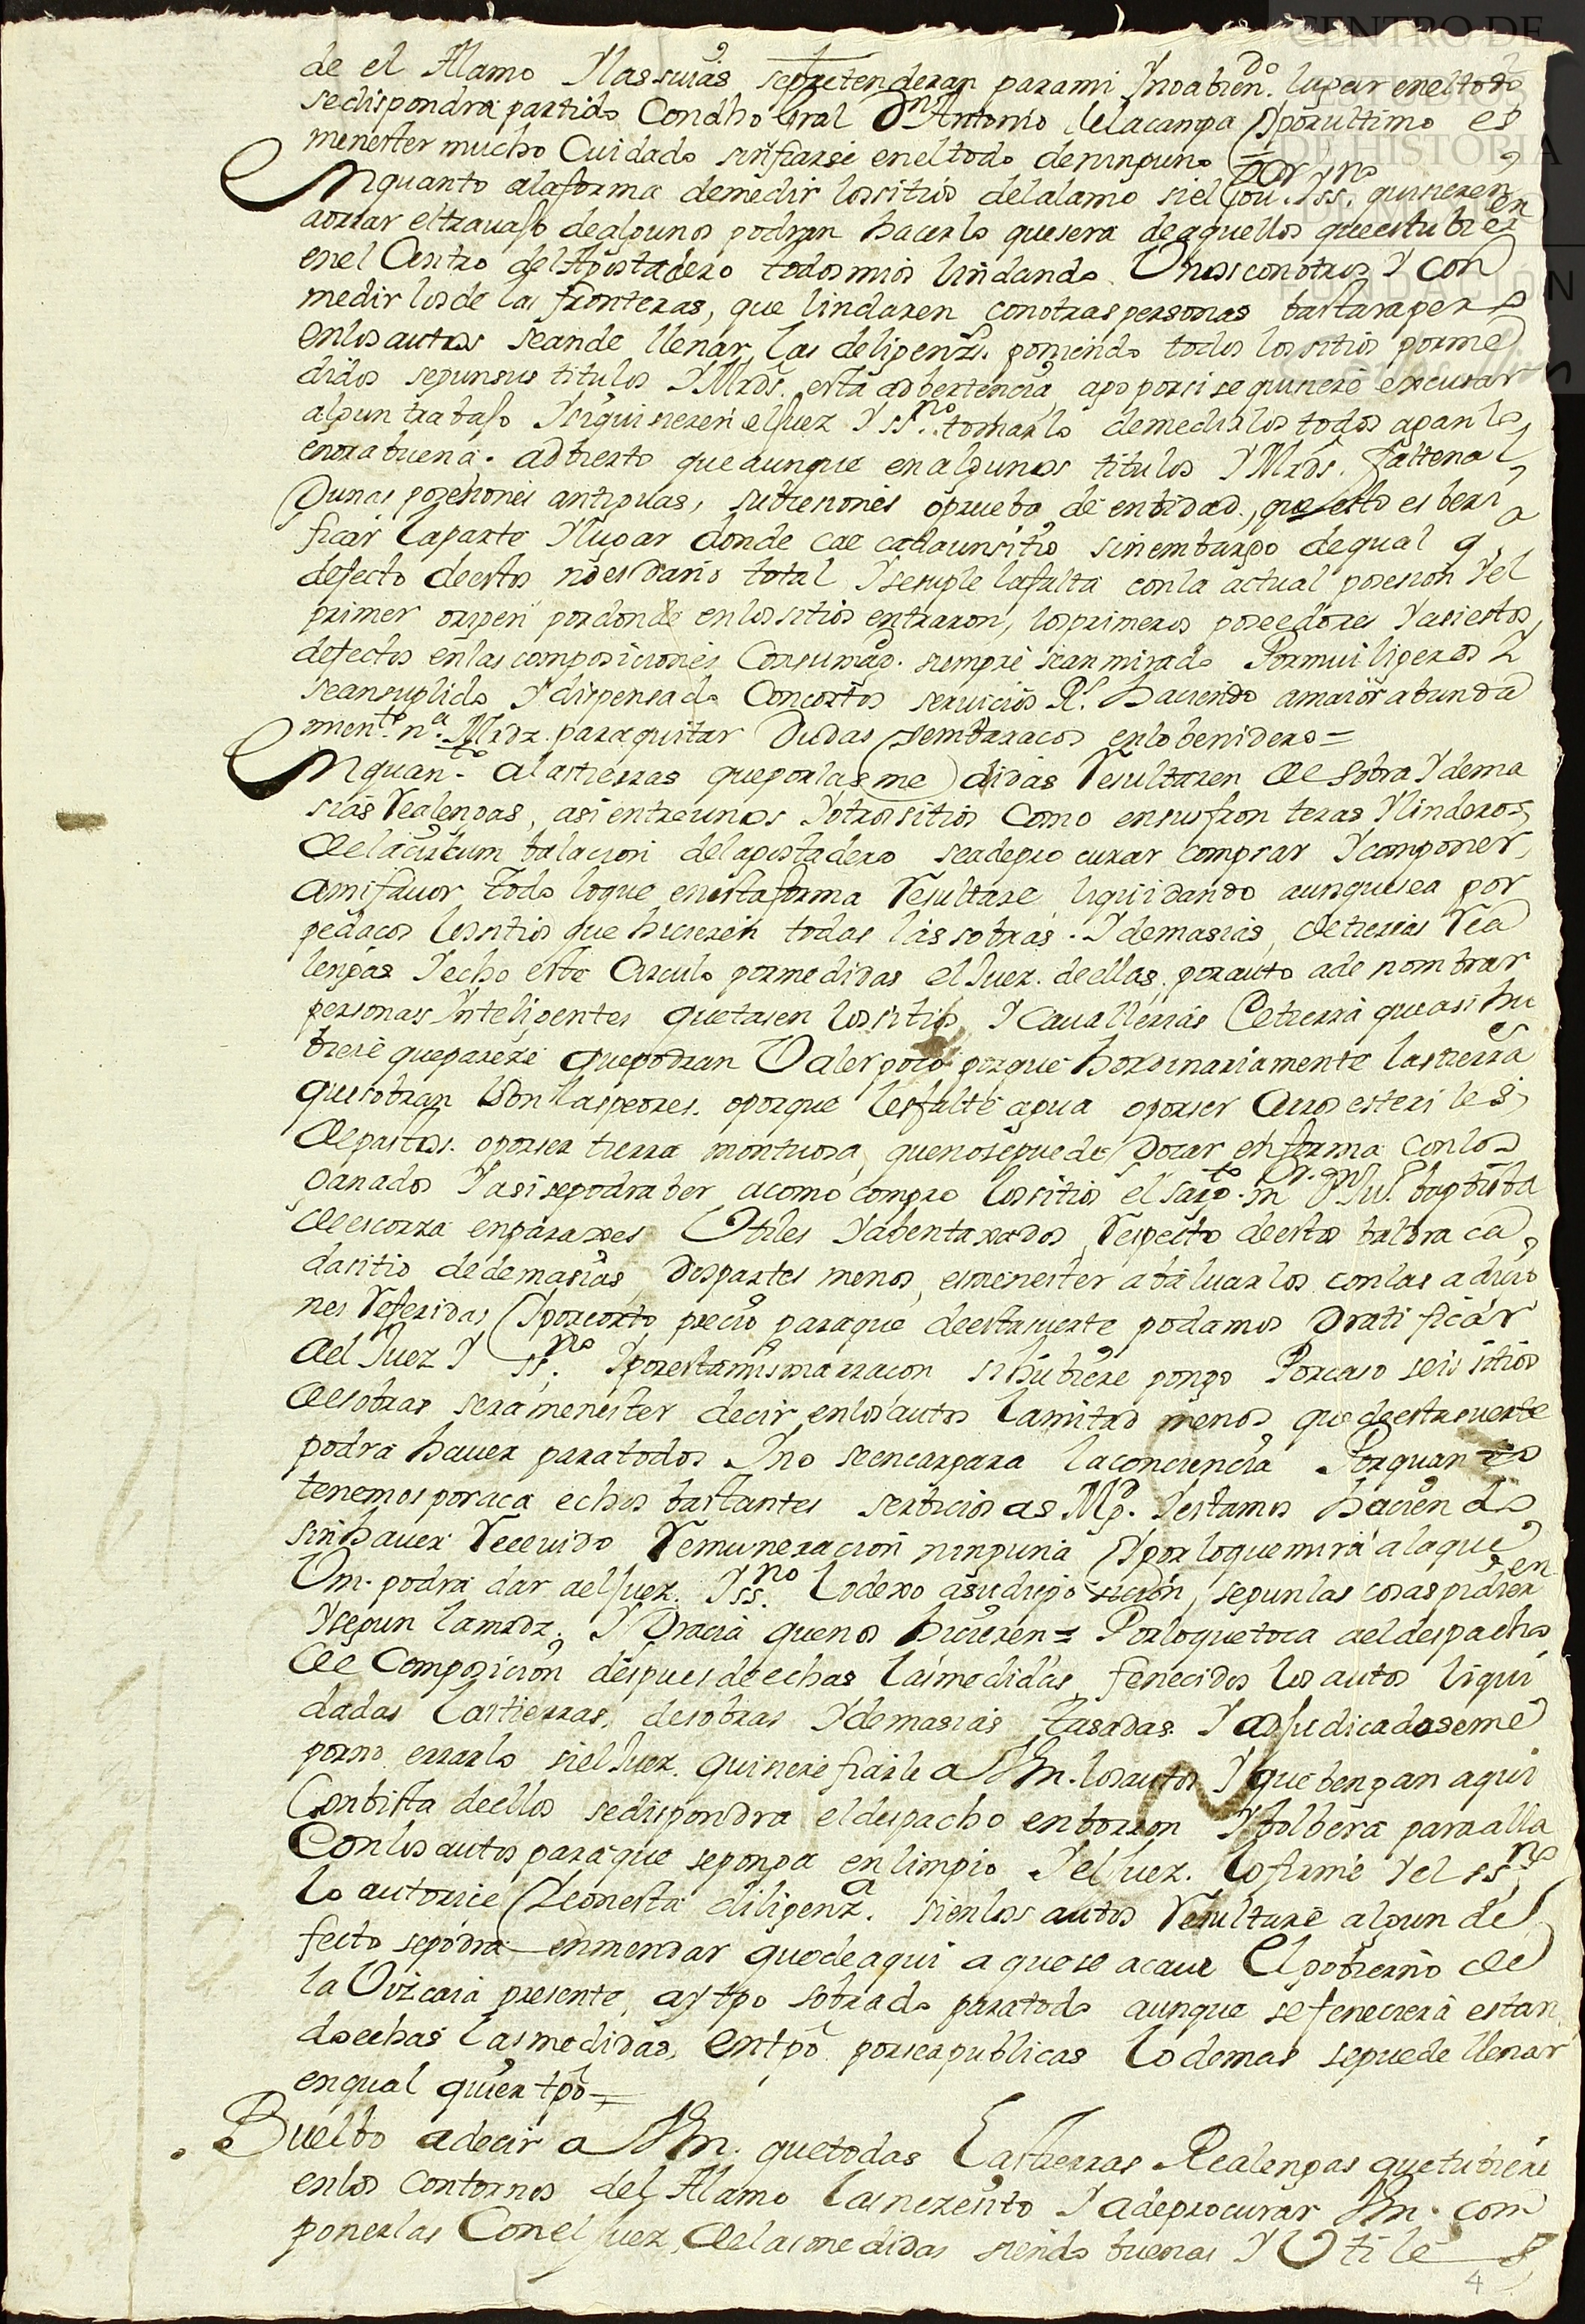 CENTRO DE
ESTUDIOS
DE HISTORIA
DE MÉXICO
FUNDACIÓN
de el Alamo Y las suias sepretenderan parami Ynoabiendo. lugar eneltodo
sedispondra partido Condho Gral Dn Antonio delacanpa Yporultimo es
menester mucho Cuidado sinfiarse eneltodo deninguno =
Enquanto alaforma demedir lossitios delalamo siel Gour. Yssno. quisieren
aorrar eltrauajo dealgunos podran hacerlo quesera deaquellos queestubieren
enel Centro delApostadero todosmios lindando Unossconotros Y con
medir losde las fronteras, que lindaren conotraspersonas bastarapero
enlosautos seande llenar las deligenzs. poniendo todos lossitios porme
didos segunsus titulos YMrds. esta adbertencia ago porsi sequisiere excusar
algun trabajo Ysiquisieren eljuez Y ssno. tomarlo demedirlos todos aganlo
enorabuena. adbierto queaunque enalgunos titulos YMrds. faltenal
gunas posesiones antiguas, subcesiones oprueba de entidad, que esto es beri
ficar laparte Ylugar donde cae cadaunsitio sinembargo dequal q.
defecto deestos noesdaño total Ysesuple lafalta conla actual posesion Yel
primer origen pordonde enlossitios entraron, losprimeros poseedores Yasiestos
defectos enlascomposiciones Consumads. siempre seanmirado Pormuiligeros Y
seansuplido Ydispensado Concortos seruicios Rs. haciendo amaiorabunda
mento. na. Mrdz. paraquitar Dudas Yembaracos enlobenidero=
Enquanto. alastierras queporlasme didas Resultaren de sobra Ydema
sias Realengas, asientreunos Yotrossitios Como ensusfron teras Ylinderos
delacircum balacion delapostadero seadeprocurar comprar Ycomponer,
amifauor todo loque enestaforma Resultare liquidando aunquesea por
pedacos lossitios que hicieren todas las sobras. Ydemasias, detierras Rea
lengas Yecho este Circulo pormedidas el Juez. deellas. porauto ade nombrar
personas Ynteligentes quetasen lossitios Y Cauallerias detierra queasi hu
biere quepareze quepodran Valerpoco porque hordinariamente lastierras
quesobran son laspeores. oporque lesfalte agua oporser Cerros esteriles
depastos. oporser tierra montuosa, quenosepuede gozar enforma conlos
ganados Yasisepodraber acomo compro lossitios el sargto. mr. Dn Juº. baptista
deescorza enparaxes Utiles Yabentaxados, Respecto deesto baldra ca
dasitio dedemasias Dospartes menos, esmenester abaluarlos conlas adicio
nes Referidas Yporcorto precio paraque deestasuerte podamos Gratificar
ael Juez Y ssno. Yporestamismarracon sihubiere pongo Porcaso seis sitios
desobras seramenester decir enlosautos lamitad menos quedeestasuerte
podra hauer paratodos Yno seencargara laconciencia Porquanto
tenemosporaca echos bastantes serbicios as Mg. Yestamos haciendo
sinhauer Receuido Remuneracion ninguna Yporloquemira alaque
Vm. podra dar aeljuez. Yssno. lodexo asudispo sicion, segunlas cosaspidieren
Ysegun lamrdz. YGracia quenos hicieren = Porloquetoca aeldespacho
de Composicion despuesdeechas lasmedidas fenecidos los autos liqui
dadas lastierras. desobras Ydemasias tasadas Y adjudicadoseme
porno errarlo sielJuez. quisiere fiarle a Vm. losautos Yquebengan aqui
Conbista deellos sedispondra eldespacho enborron Ybolbera paraalla
Conlosautos paraque seponga enlimpio Yeljuez. lofirme Yel ssno.
lo autorice Yconesta diligenza. sienlos autos Resultare algun de
fecto sepodra enmendar quedeaqui aquese acaue Elgobierno de
la Vizcaia presente, ay tpo sobrado paratodo aunque sefeneciera estan
doechas lasmedidas, entpo porserpublicas lodemas sepuede llenar
enqual quier tpo=
Buelbo adecir a Vm. quetodas lastierras Realengas quetubiere
enlos contornos del Alamo lasnecesito Y adeprocurar Vm. com
ponerlas Conel Juez, delasmedidas siendo buenas Y Utiles
4